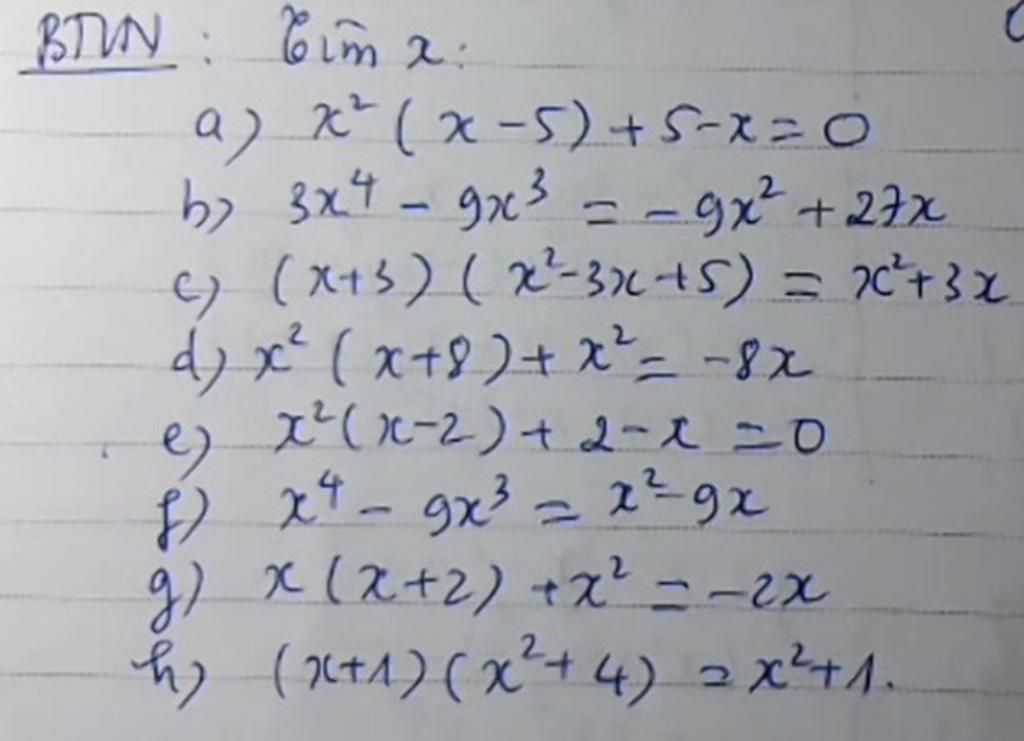 BTVN : Tìm x:
a) x² ( x - 5) + 5 - x = 0
b) 3x⁴ - 9x³ = - 9x² + 27x
c) (x+3) ( x² - 3x + 5) = x² + 3x
d) x² ( x+8) + x² = -8x
e) x² (x-2) + 2 - x = 0
f) x⁴ - 9x³ = x² - 9x
g) x (x+2) + x² = -2x
h) (x+1) (x² + 4) = x² + 1.